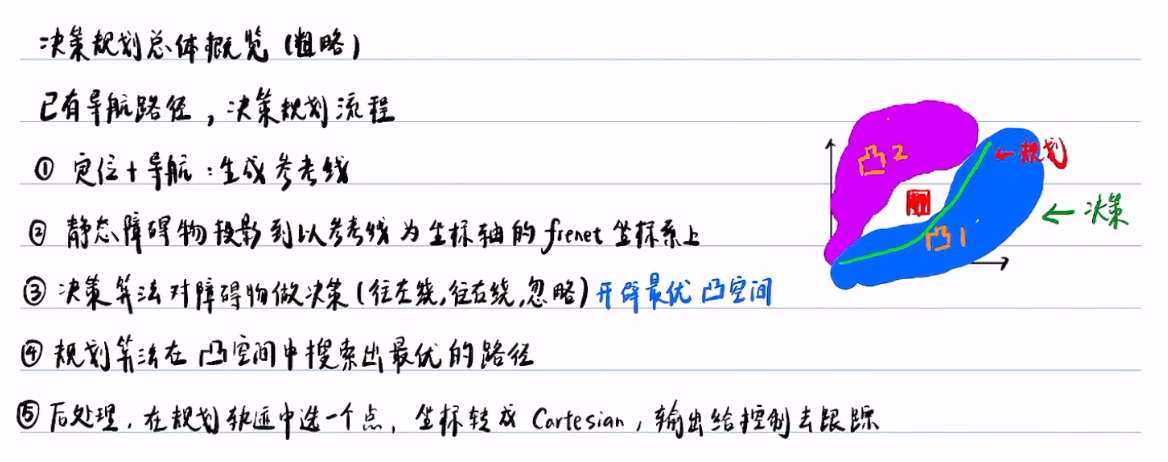 决策规划总体概览(粗略)
已有导航路径,决策规划流程
① 定位+导航:生成参考线
② 静态障碍物投影到以参考线为坐标轴的frenet坐标系上
③ 决策算法对障碍物做决策(往左绕,往右绕,忽略)开辟最优凸空间
④ 规划算法在凸空间中搜索出最优的路径
⑤ 后处理,在规划轨迹中选一个点,坐标转成Cartesian,输出给控制去跟踪
凸2
←规划
←决策
凸1